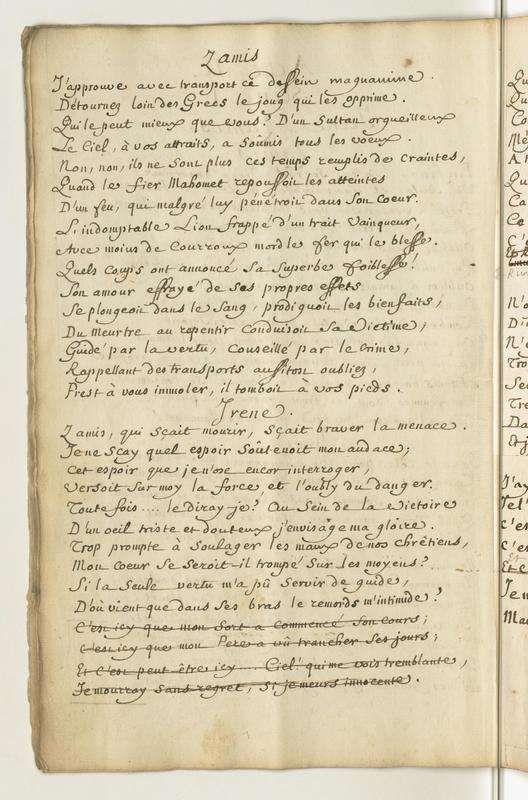 Zamis
J'approuve avec transport ce dessein magnanime.
Détournez loin des Grecs le joug qui les opprime.
Qui le peut mieux que vous? D'un Sultan orgueilleux
Le Ciel, à vos attraits, a soûmis tous les voeux.
Non, non, ils ne sont plus ces temps remplis de craintes,
Quand le fier Mahomet repoussoit les atteintes
D'un feu, qui malgré luy pénétroit dans son coeur.
L'indomptable Lion frappé d'un trait vainqueur,
Avec moins de Courroux mord le fer qui le blesse.
Quels coups ont annoncé sa superbe foiblesse!
Son amour effrayé de ses propres effets
Se plongeoit dans le sang, prodiguoit les bienfaits,
Du meurtre au repentir conduisoit sa victime,
Guidé par la vertu, conseillé par le crime,
Rappellant des transports aussitost oubliez,
Prest à vous immoler, il tomboit à vos pieds.
Irene.
Zamis, qui sçait mourir, sçait braver la menace.
Je ne sçay quel espoir soûtenoit mon audace;
Cet espoir que je n'ose encor interroger,
Versoit sur moy la force et l'oubly du danger.
Toutefois.... le diray-je? Au sein de la victoire
D'un oeil triste et douteux j'envisage ma gloire.
Trop prompte à soulager les maux de nos chrêtiens,
Mon coeur se seroit-il trompé sur les moyens?
Si la seule vertu m'a pû servir de guide,
D'où vient que dans ses bras le remords m'intimide?
C'est icy que mon sort a commencé son cours;
C'est icy que mon Pere a vû trancher ses jours;
Et c'est peut être icy.... Ciel! qui me vois tremblante,
Je mourray sans regret, si je meurs innocente.